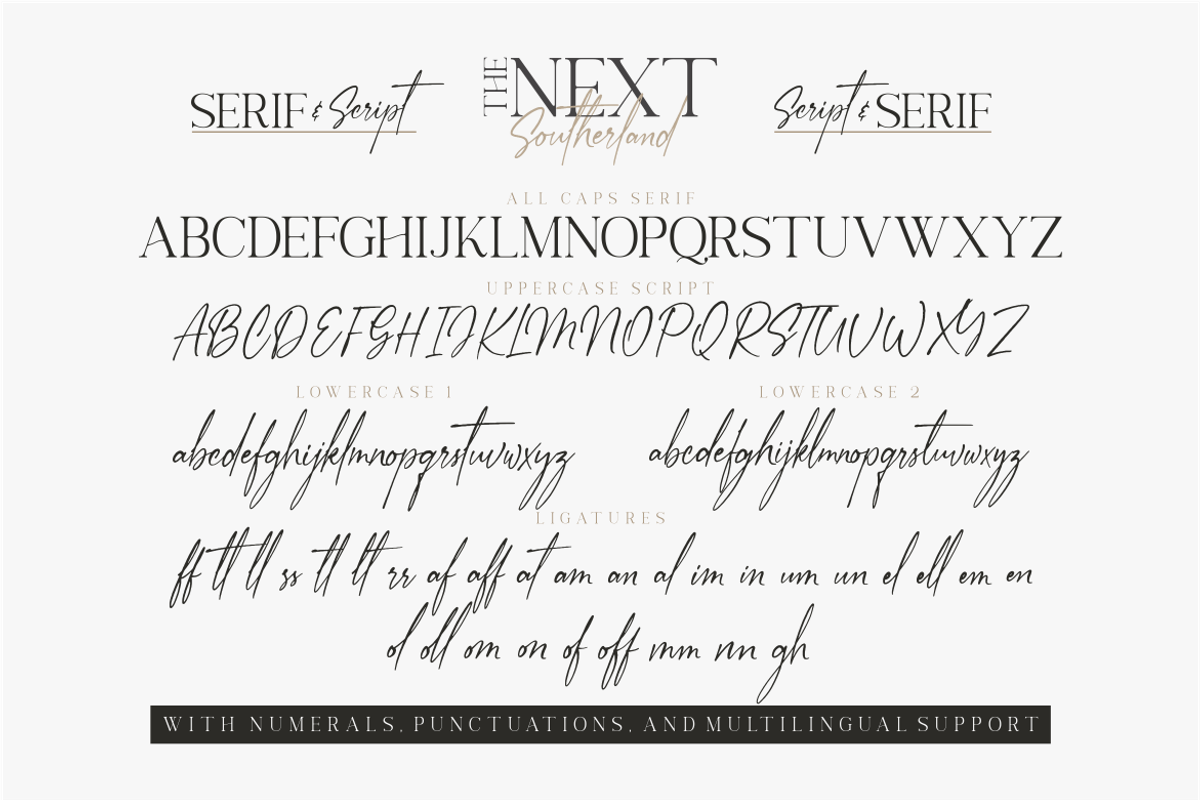 SERIF & Script
THE NEXT
Southerland
Script & SERIF
ALL CAPS SERIF
ABCDEFGHIJKLMNOPQRSTUVWXYZ
UPPERCASE SCRIPT
ABCDEFGHIJKLMNOPQRSTUVWXYZ
LOWERCASE 1
abcdefghijklmnopqrstuvwxyz
LOWERCASE 2
abcdefghijklmnopqrstuvwxyz
LIGATURES
ff tt ll ss tl lt rr af aff at am an al im in um un el ell em en
ol oll om on of off mm nn gh
WITH NUMERALS, PUNCTUATIONS, AND MULTILINGUAL SUPPORT